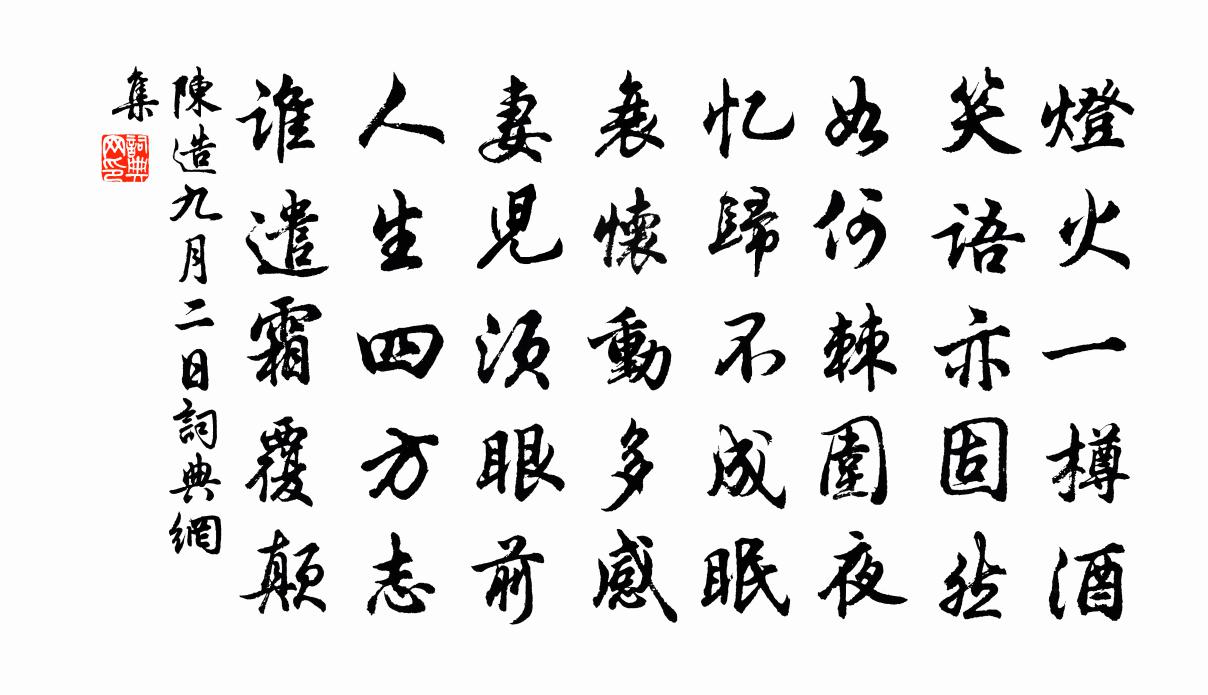 燈火一樽酒
笑語亦固然
如何棘圍夜
忆歸不成眠
衰懷動多感
妻児須眼前
人生四方志
谁遣霜覆顛
陳造九月二日詞典網
集
詞典
网印